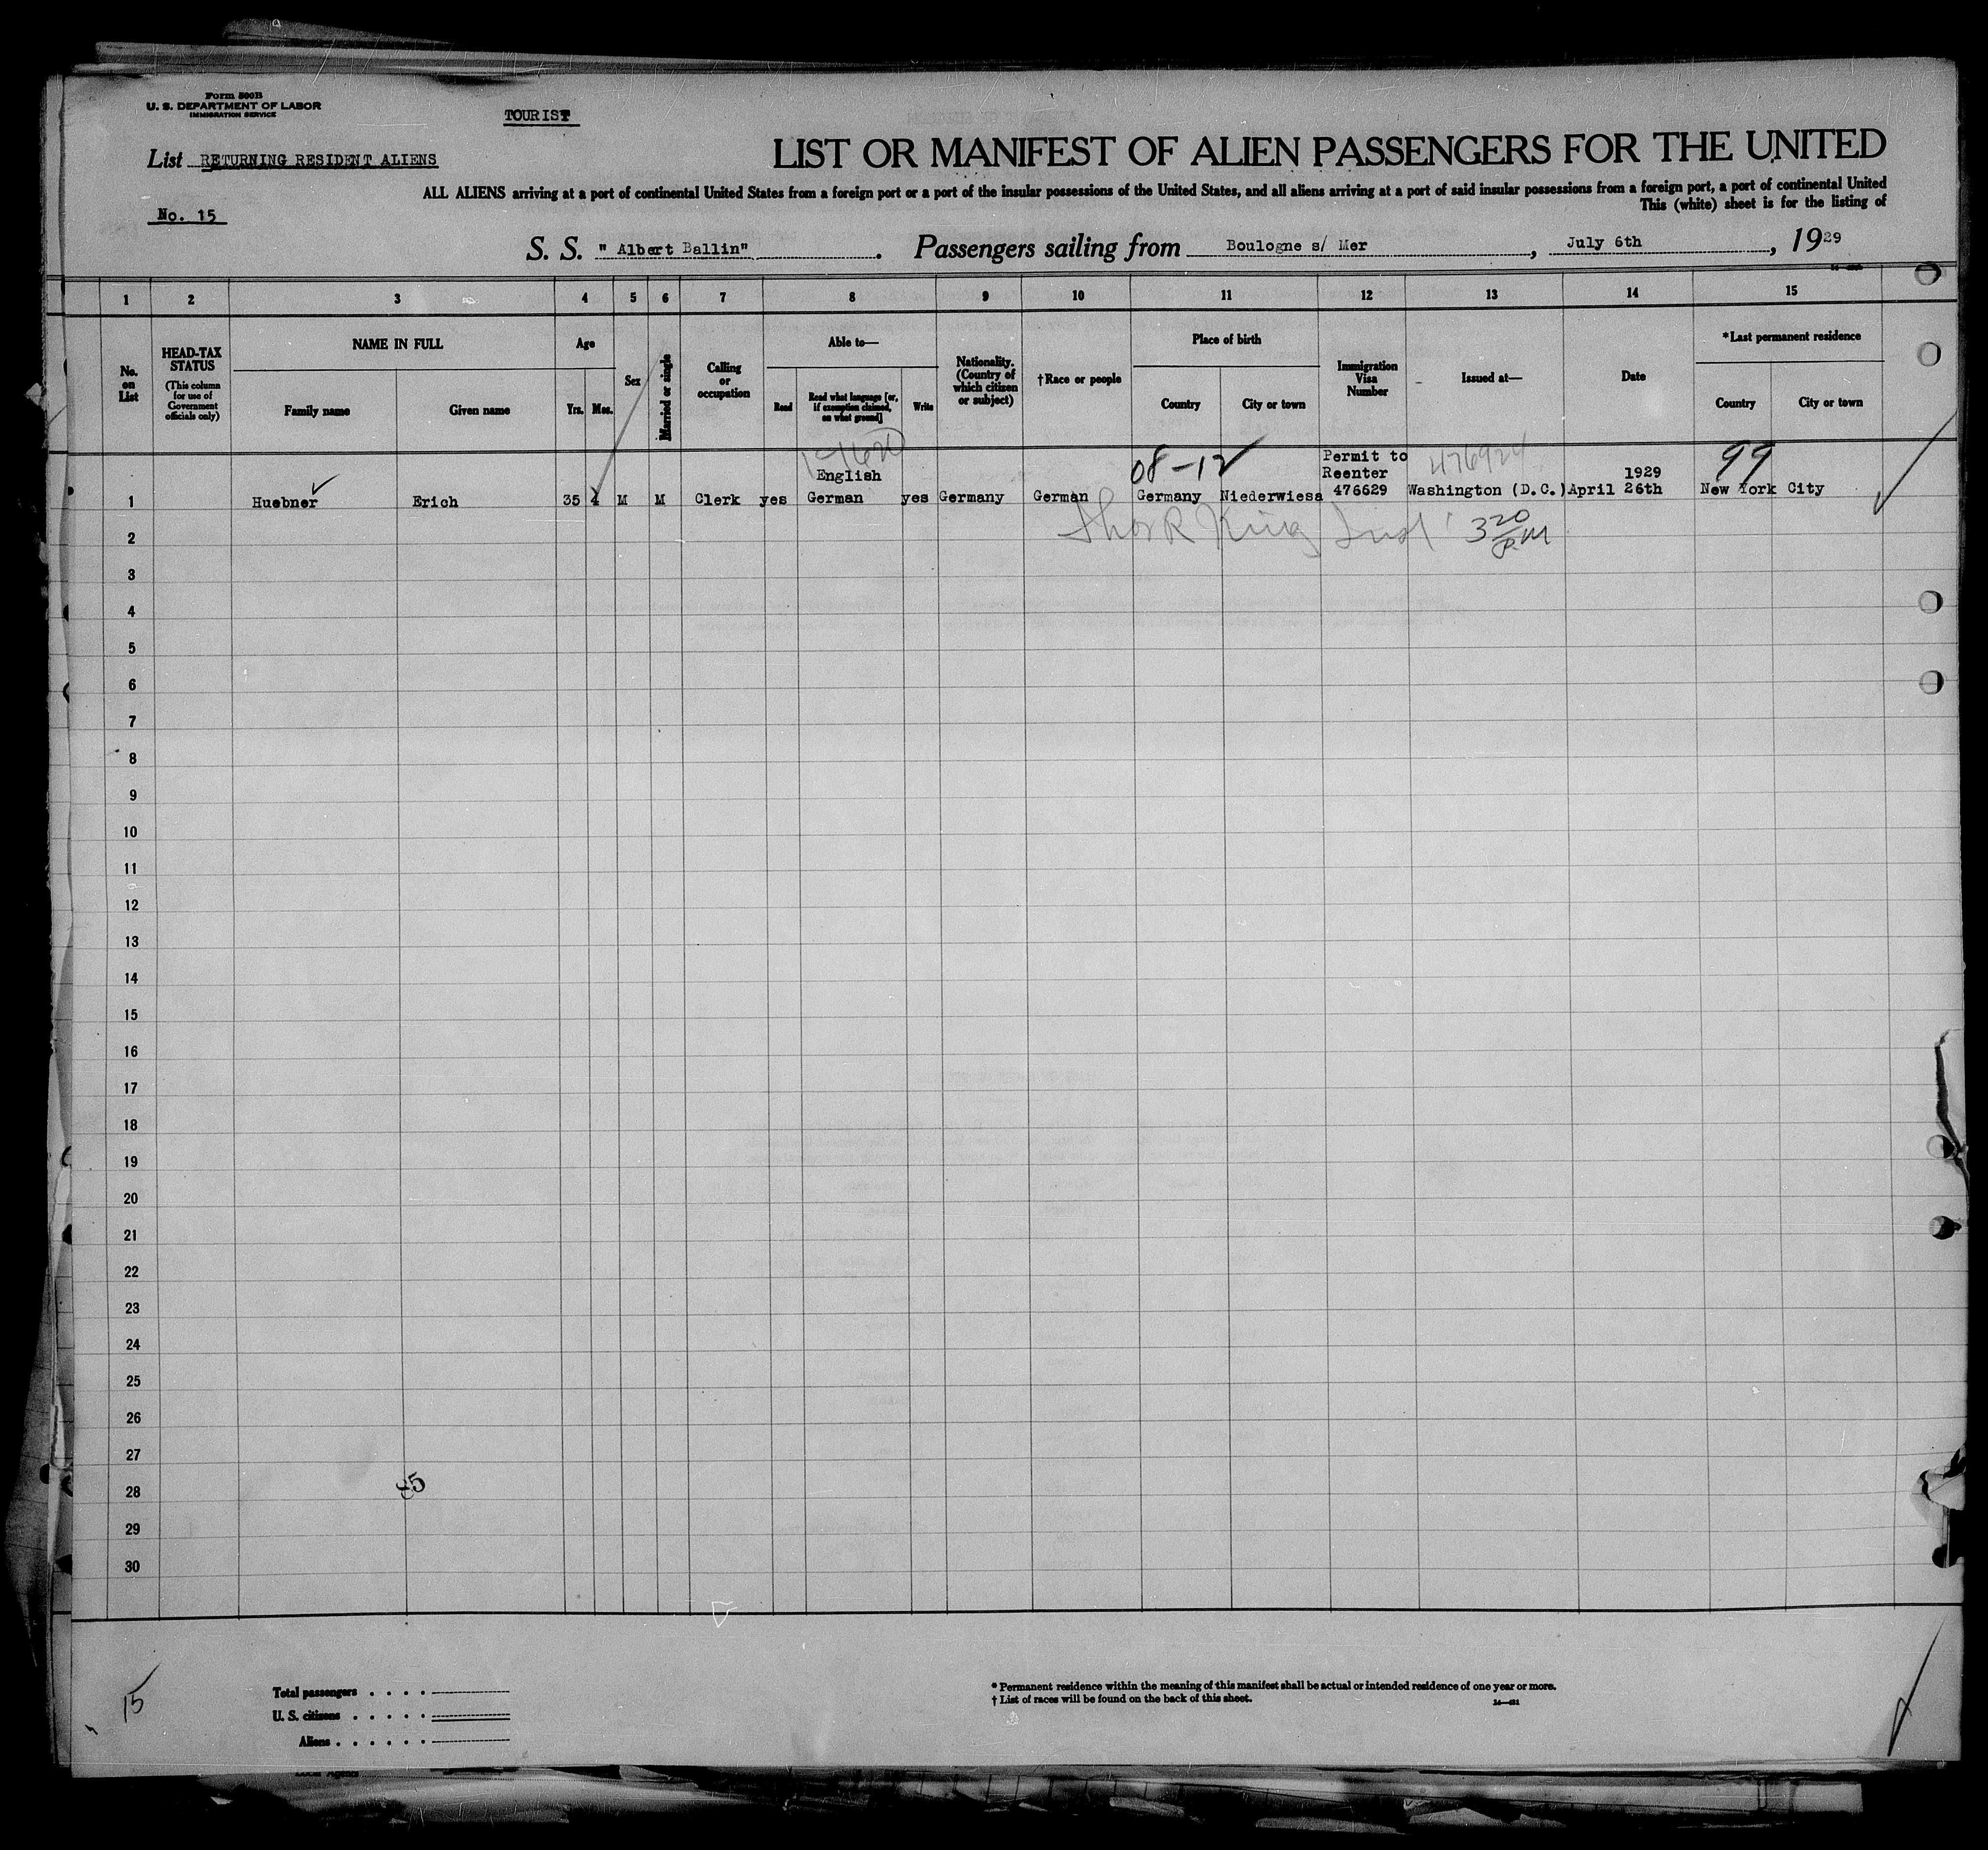 Form 500B
U. S. DEPARTMENT OF LABOR
IMMIGRATION SERVICE
TOURIST
List RETURNING RESIDENT ALIENS
No. 15
LIST OR MANIFEST OF ALIEN PASSENGERS FOR THE UNITED
ALL ALIENS arriving at a port of continental United States from a foreign port or a port of the insular possessions of the United States, and all aliens arriving at a port of said insular possessions from a foreign port, a port of continental United
This (white) sheet is for the listing of
S. S. " Albert Ballin" . Passengers sailing from Boulogne s/ Mer , July 6th , 1929
1 2 3 4 5 6 7 8 9 10 11 12 13 14 15
No. on List
HEAD-TAX STATUS
(This column for use of Government officials only)
NAME IN FULL
Family name Given name
Age
Yrs. Mos.
Sex
Married or single
Calling or occupation
Able to—
Read
Read what language [or, if exemption claimed, on what ground]
Write
Nationality. (Country of which citizen or subject)
†Race or people
Place of birth
Country City or town
Immigration Visa Number
Issued at—
Date
*Last permanent residence
Country City or town
08-12 476924 99
Permit to
English Reenter 1929
1 Huebner Erich 35 4 M M Clerk yes German yes Germany German Germany Niederwiesa 476629 Washington (D.C.) April 26th New York City
2 King 3 20 P.M
3
4
5
6
7
8
9
10
11
12
13
14
15
16
17
18
19
20
21
22
23
24
25
26
27
28
29
30
15
Total passengers . . . .
U. S. citizens . . . . .
Aliens . . . . . .
* Permanent residence within the meaning of this manifest shall be actual or intended residence of one year or more.
† List of races will be found on the back of this sheet.